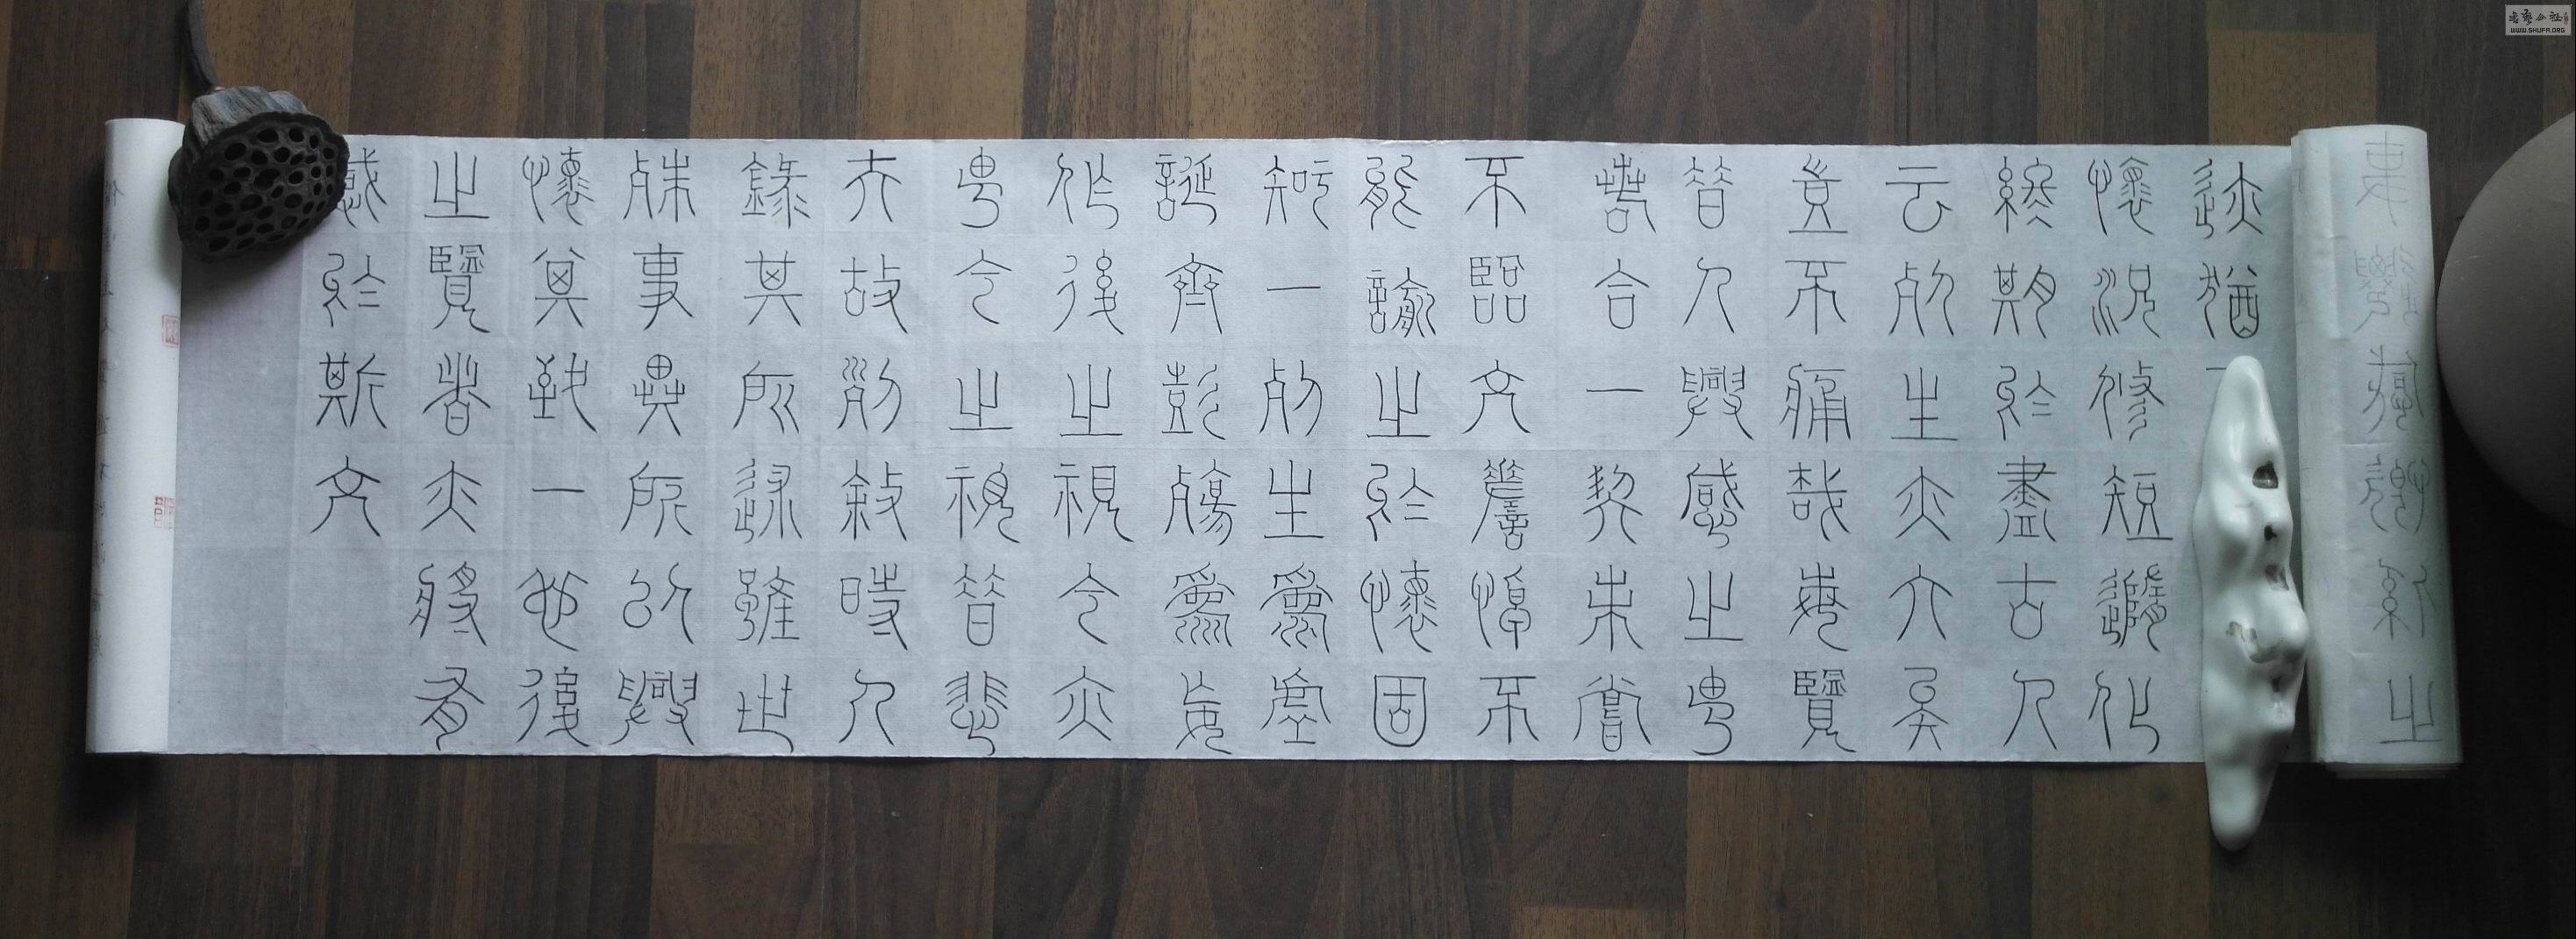 迹猶
懷況修短隨化
終期於盡古人
云死生亦大矣
豈不痛哉每覽
昔人興感之由
若合一契未嘗
不臨文嗟悼不
能諭之於懷固
知一死生為虛
誕齊彭殤為妄
作後之視今亦
由今之視昔悲
夫故列敘時人
錄其所述雖世
殊事異所以興
懷其致一也後
之覽者亦將有
感於斯文
WWW.SHUFA.ORG